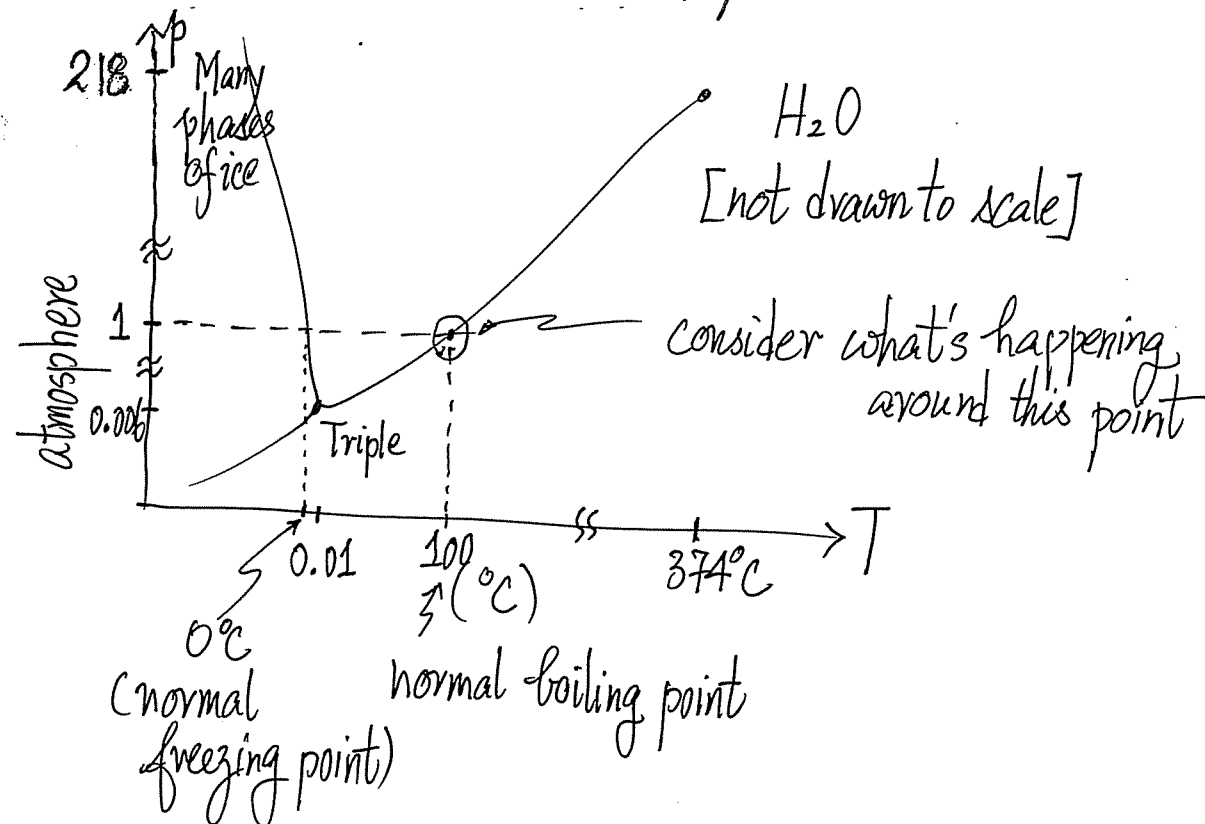 p
218
Many
phases
of ice
H₂O
[not drawn to scale]
atmosphere
1
consider what's happening
around this point
0.006
Triple
T
0.01
100
(°C)
374°C
0°C
(normal
freezing point)
normal boiling point